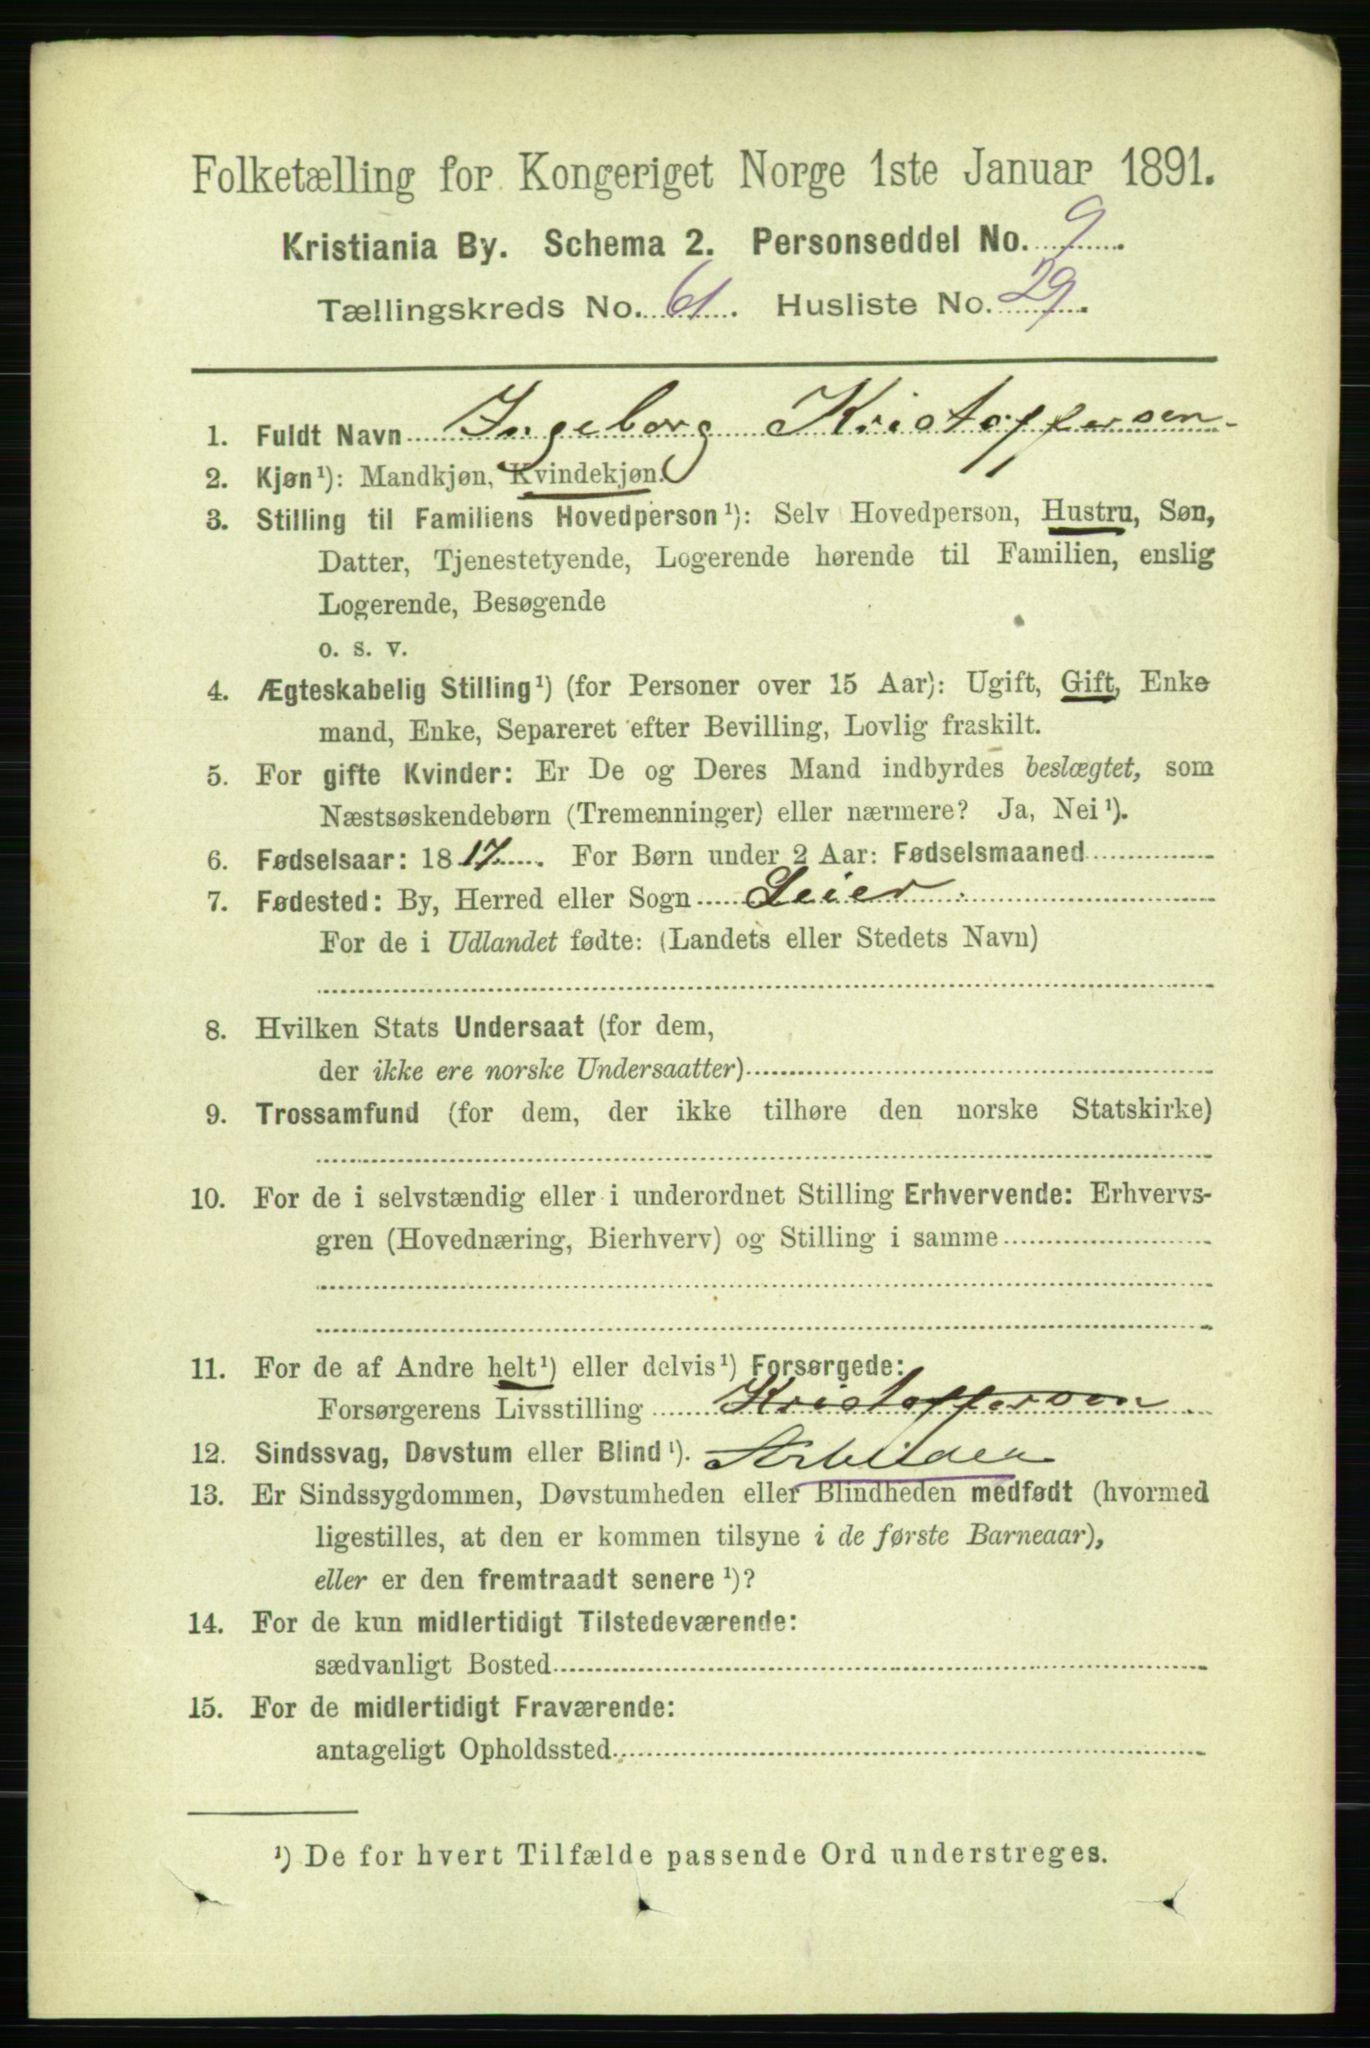 Folketælling for Kongeriget Norge 1ste Januar 1891.
Kristiania By. Schema 2. Personseddel No. 9.
Tællingskreds No. 61. Husliste No. 29.
1. Fuldt Navn Ingeborg Kristoffersen
2. Kjøn¹): Mandkjøn, Kvindekjøn.
3. Stilling til Familiens Hovedperson¹): Selv Hovedperson, Hustru, Søn,
Datter, Tjenestetyende, Logerende hørende til Familien, enslig
Logerende, Besøgende
o. s. v.
4. Ægteskabelig Stilling¹) (for Personer over 15 Aar): Ugift, Gift, Enke
mand, Enke, Separeret efter Bevilling, Lovlig fraskilt.
5. For gifte Kvinder: Er De og Deres Mand indbyrdes beslægtet, som
Næstsøskendebørn (Tremenninger) eller nærmere? Ja, Nei¹).
6. Fødselsaar: 1817. For Børn under 2 Aar: Fødselsmaaned
7. Fødested: By, Herred eller Sogn Leier
For de i Udlandet fødte: (Landets eller Stedets Navn)
8. Hvilken Stats Undersaat (for dem,
der ikke ere norske Undersaatter)
9. Trossamfund (for dem, der ikke tilhøre den norske Statskirke)
10. For de i selvstændig eller i underordnet Stilling Erhvervende: Erhvervs-
gren (Hovednæring, Bierhverv) og Stilling i samme
11. For de af Andre helt¹) eller delvis¹) Forsørgede:
Forsørgerens Livsstilling Kristoffersen
12. Sindssvag, Døvstum eller Blind¹). Arbeider
13. Er Sindssygdommen, Døvstumheden eller Blindheden medfødt (hvormed
ligestilles, at den er kommen tilsyne i de første Barneaar),
eller er den fremtraadt senere¹)?
14. For de kun midlertidigt Tilstedeværende:
sædvanligt Bosted
15. For de midlertidigt Fraværende:
antageligt Opholdssted
¹) De for hvert Tilfælde passende Ord understreges.